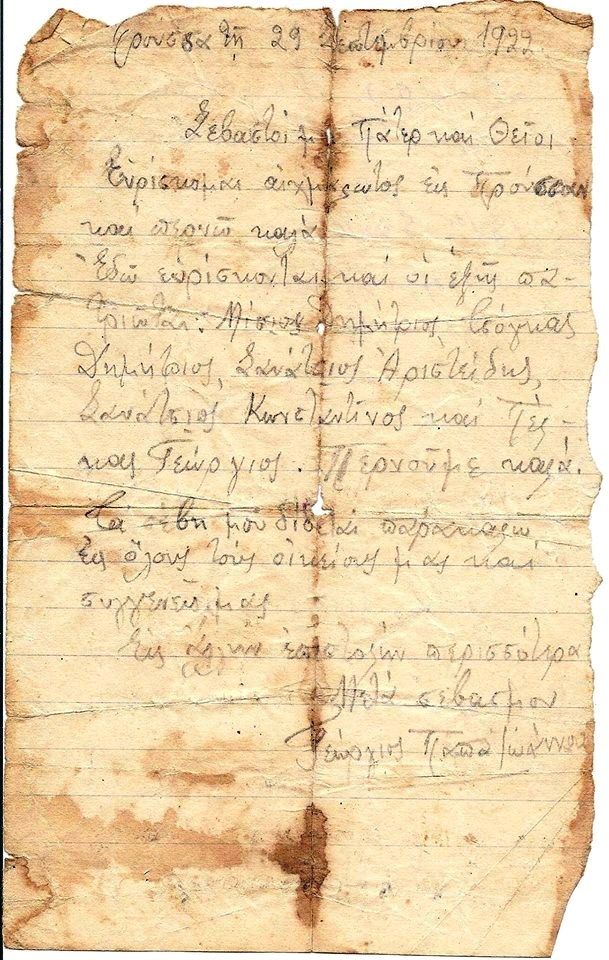 Προυσσα τη 29 Σεπτεμβρίου 1922
Σεβαστοί μ Πάτερ και Θείοι
Ευρίσκομαι αιχμαρωτος εις Προύσσαν
και περνώ καλά
Εδώ ευρίσκονται και οι εξής πα-
τριώται: Μίσιος Δημήτριος Τσόγκας
Δημήτριος, Σανάτσιος Αριστείδης,
Σανάτσιος Κωνσταντίνος και Πές-
κας Γεώργιος. Περνούμε καλά.
Τα σέβη μου δίδεται παρακαλώ
εις όλους τους οικείους μας και
συγγενείς μας
Εις άλλην επιστολήν περισσότερα
Μετά σεβασμού
Γεώργιος Παπαϊωάννου